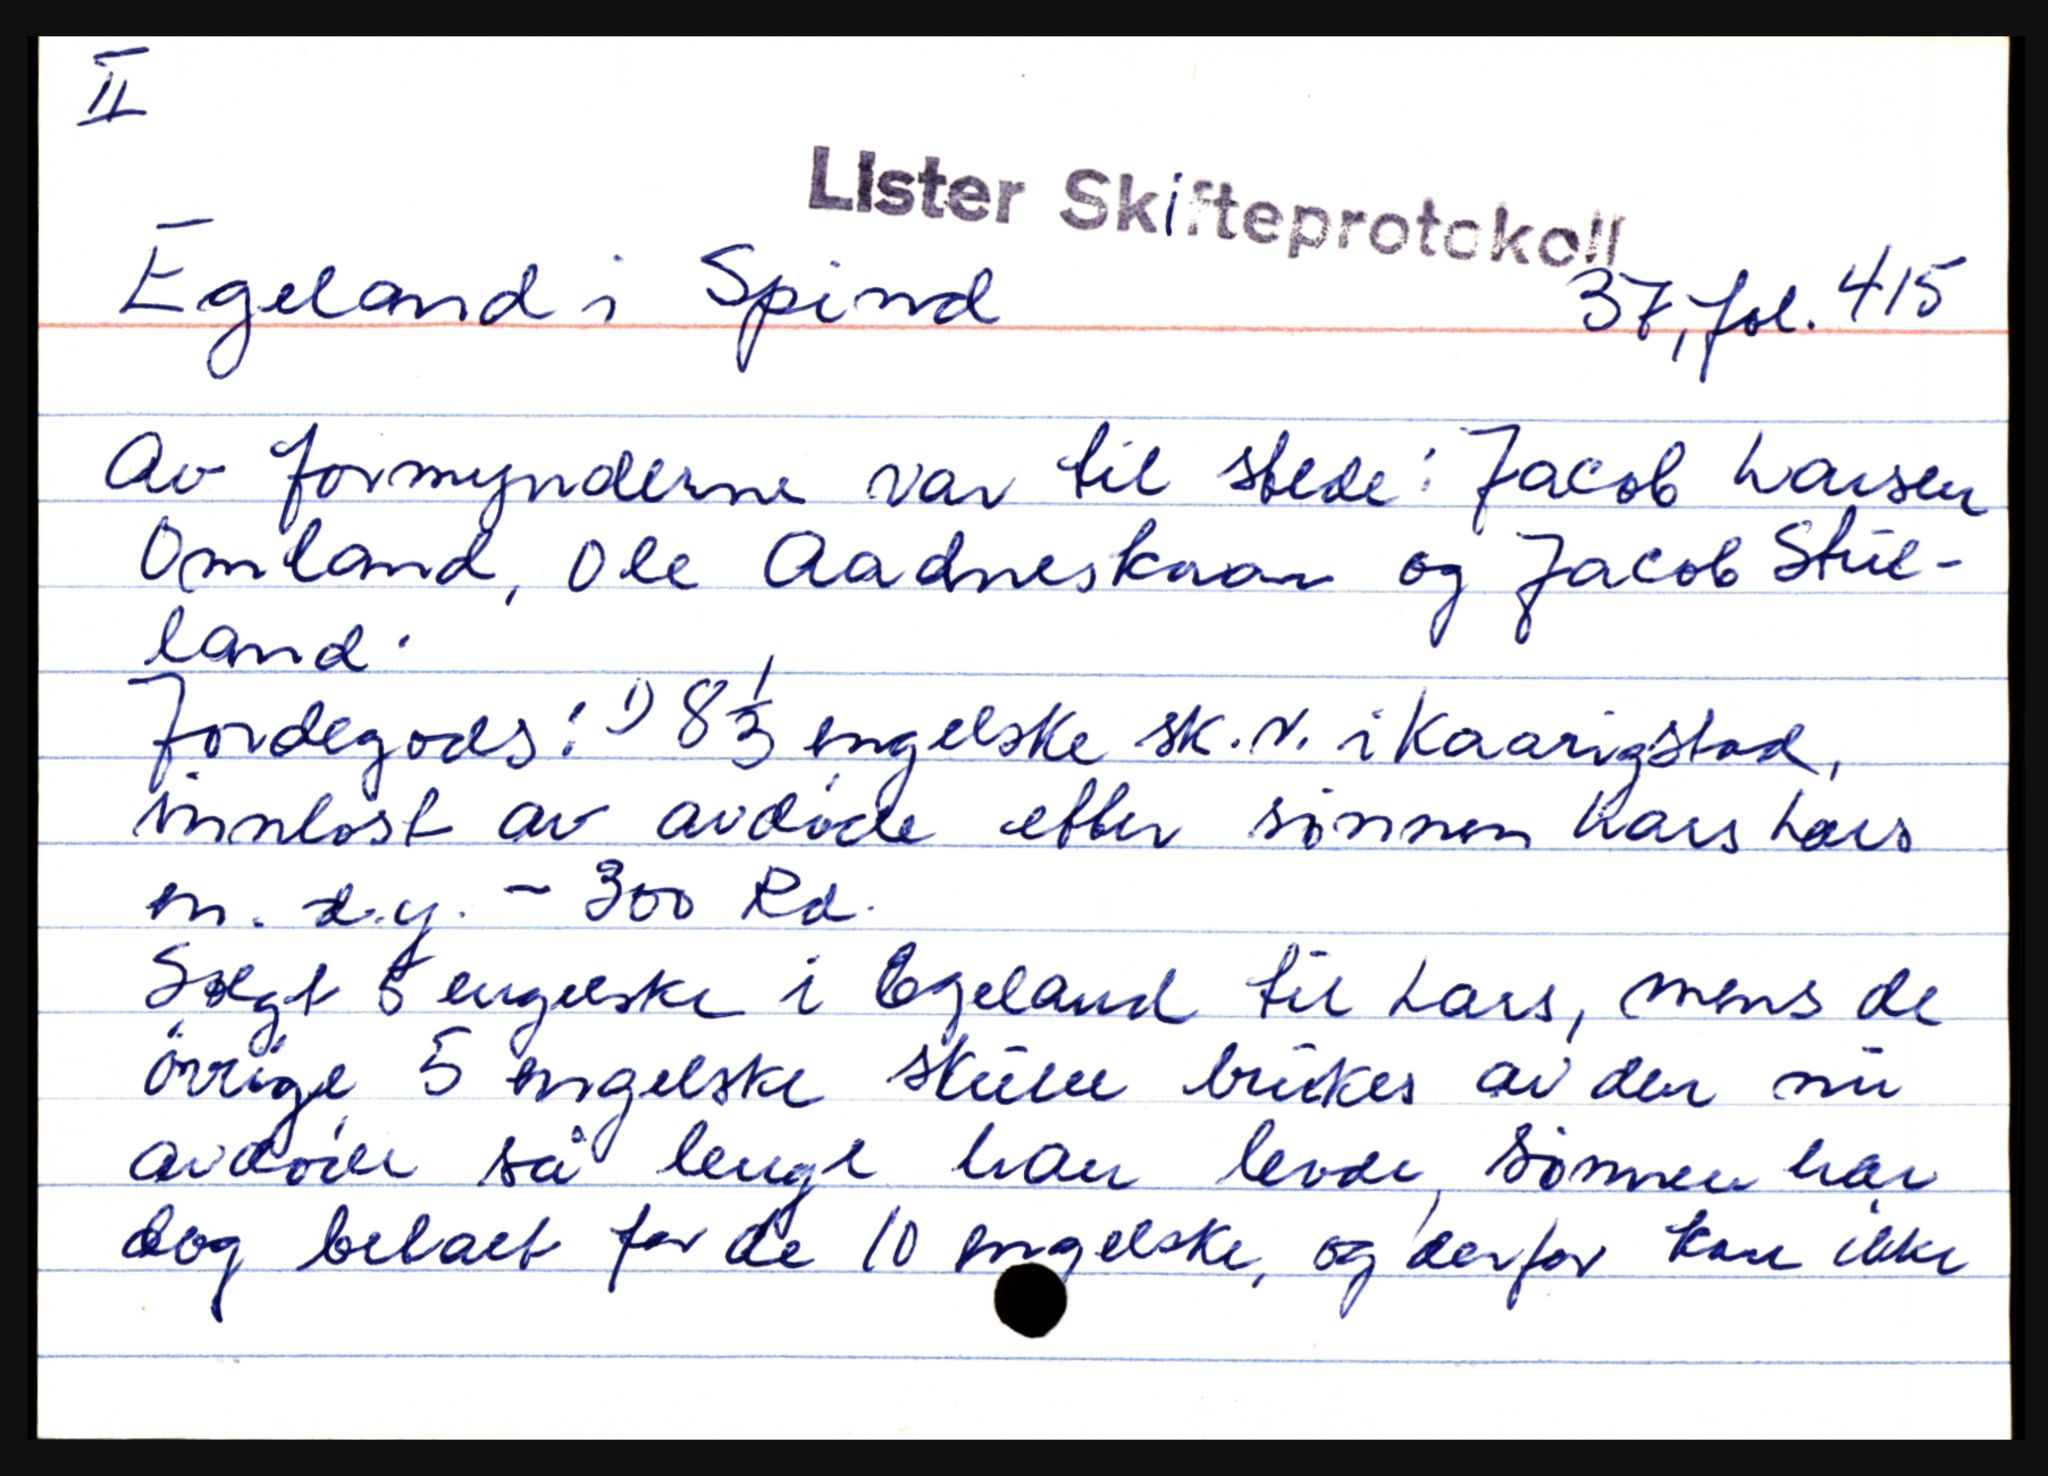 II
Lister Skifteprotokoll
Egeland i Spind 37, fol. 415
Av formynderne var til stede: Jacob Larsen
Omland, Ole Aadneskaar og Jacob Stue-
land.
Jordegods: 1) 8 1/3 engelske sk. v. i Kaarigstad,
innløst av avdøde etter sønnen Lars Lars
en. d.y. - 300 Rd.
Solgt 5 engelske i Egeland til Lars, mens de
övrige 5 engelske skulle brukes av den nu
avdøde så lenge han levde, sønnen har
dog betalt for de 10 engelske, og derfor kan ikke